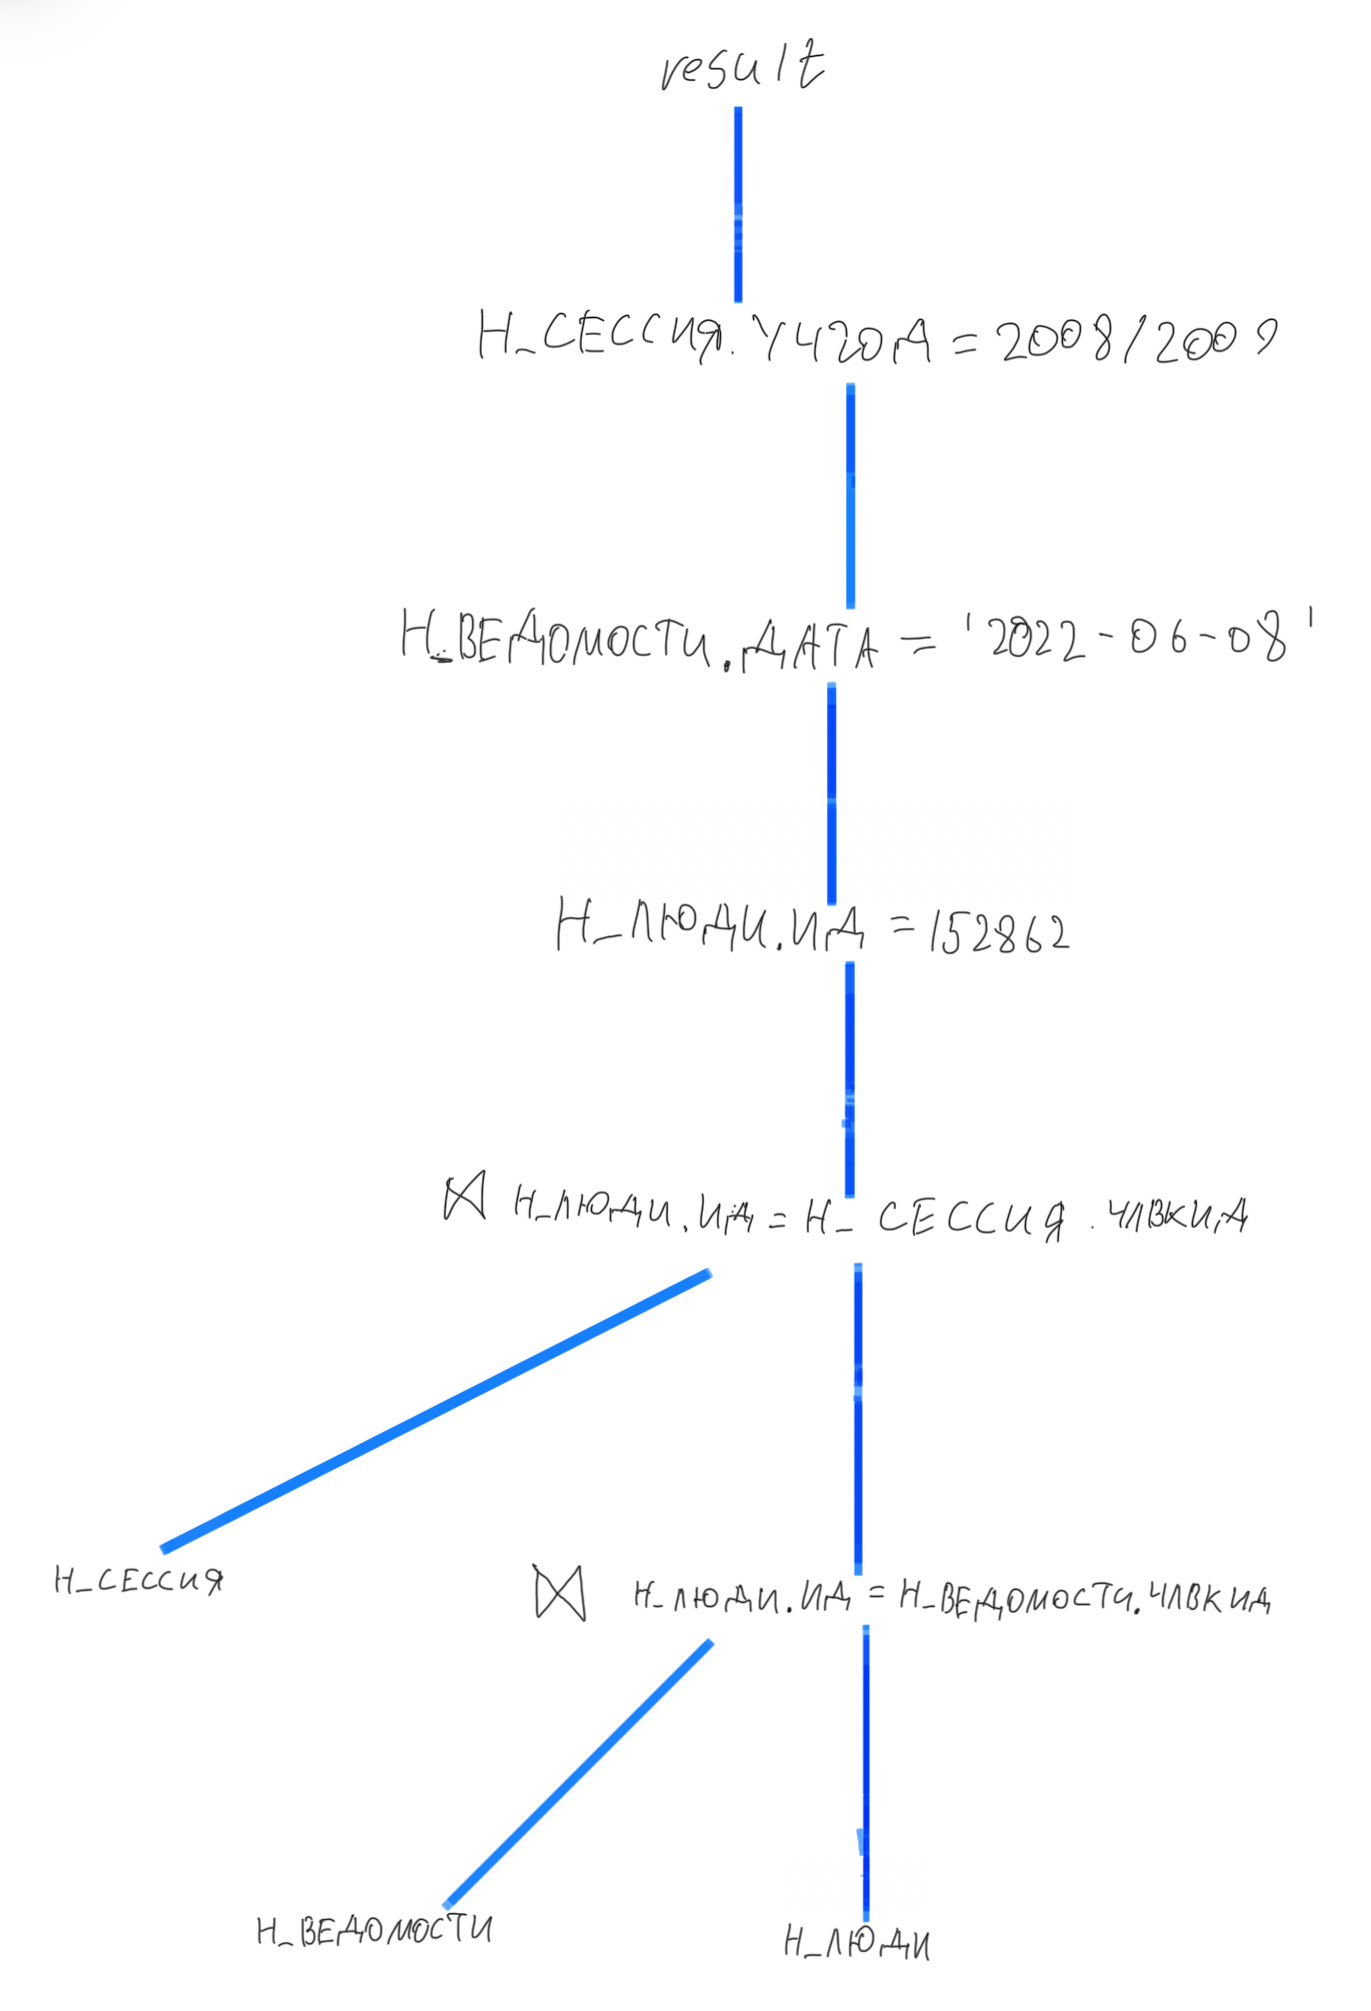 result
Н_СЕССИЯ.УЧГОД = 2008/2009
Н_ВЕДОМОСТИ.ДАТА = '2022-06-08'
Н_ЛЮДИ.ИД = 152862
⋈ Н_ЛЮДИ.ИД = Н_СЕССИЯ.ЧЛВКИД
Н_СЕССИЯ
⋈ Н_ЛЮДИ.ИД = Н_ВЕДОМОСТИ.ЧЛВКИД
Н_ВЕДОМОСТИ
Н_ЛЮДИ